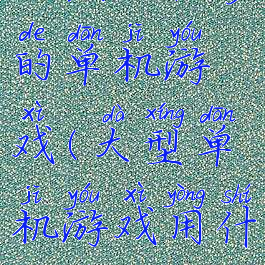 de dān jī yóu
的单机游
xì dà xíng dān
戏(大型单
jī yóu xì yòng shí
机游戏用什